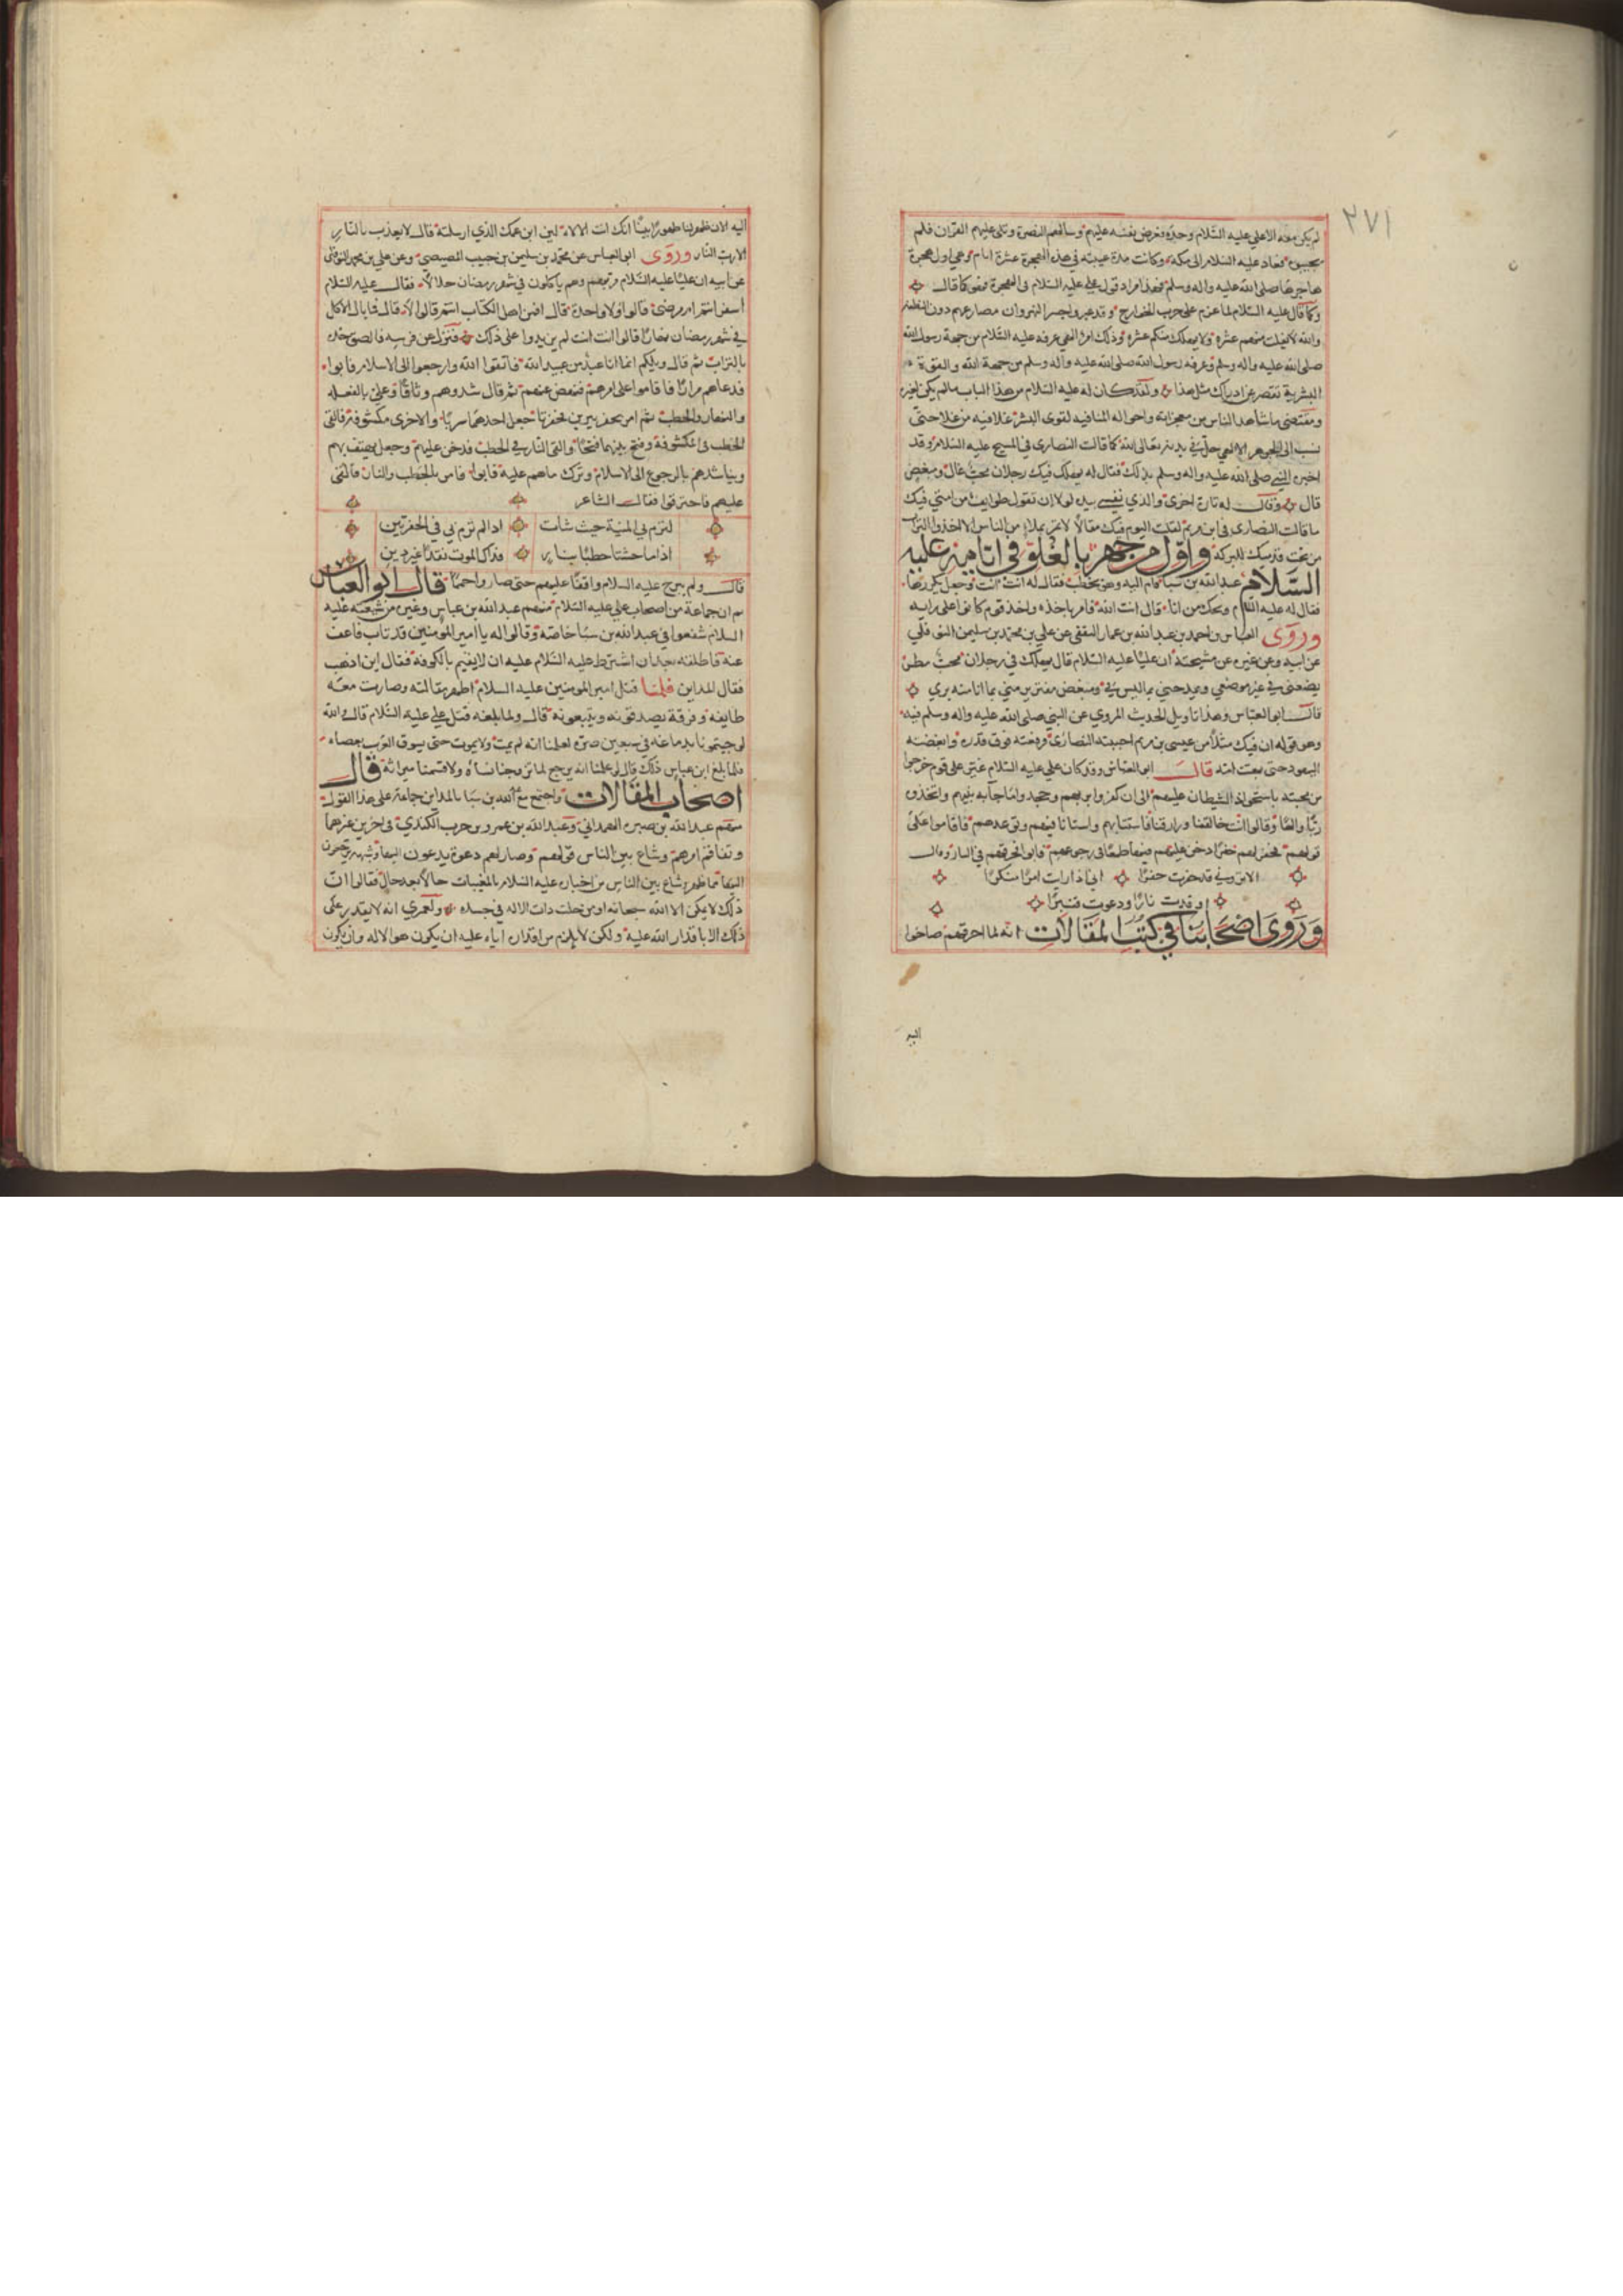 ٢٧١
لم يكن معه الا علي عليه السّلام وحده فعرض نفسه عليهم وسألهم النصرة وتلى عليهم القرآن فلم
يجيبوه فعاد عليه السلام الى مكة وكانت مدة غيبته في هذه الهجرة عشرة ايام وهي اول هجرة
هاجرها صلى الله عليه واله وسلم فهذا مراد قول علي عليه السلام في الهجرة فهو كما قال
وكما قال عليه السّلام لما عزم على حرب الخوارج وقد عبروا جسر النهروان مصارعهم دون النطفة
والله لا يفلت منهم عشرة ولا يهلك منكم عشرة وذلك امر الهي عرفه عليه السّلام من جهة رسول الله
صلى الله عليه واله وسلم وعرفه رسول الله صلى الله عليه واله وسلم من جهة الله والقوة
البشرية تقصر عن ادراك مثل هذا ولقد كان له عليه السلام من هذا الباب ما لم يكن لغيره
ومقتضى ما شاهد الناس من معجزاته واحواله المنافية لقوى البشر غلا فيه من غلا حتى
نسب الى الجوهر الالهي حل في بدنه تعالى الله كما قالت النصارى في المسيح عليه السلام وقد
اخبره النبي صلى الله عليه واله وسلم بذلك فقال له يهلك فيك رجلان محبّ غال ومبغض
قال وقال له تارة اخرى والذي نفسي بيده لولا ان تقول طوايف من امتي فيك
ما قالت النصارى في ابن مريم لقلت اليوم فيك مقالا لا تمر بملاء من الناس الا اخذوا التراب
من تحت قدميك للبركة واول من جهر بالغلوّ في ايامه عليه
السّلام عبد الله بن سبا قام اليه وهو يخطب فقال له انت انت وجعل يكررها
فقال له عليه السّلام ويحك من انا قال انت الله فامر باخذه واخذ قوم كانوا على رايه
وروى ابو العباس واحمد بن عبد الله بن عمار الثقفي عن علي بن محمد بن سليمن النوفلي
عن ابيه وعن غيره عن مشيخته ان عليا عليه السّلام قال يهلك في رجلان محبّ مطر
يضعني في غير موضعي ويمدحني بما ليس في ومبغض مفتر يرميني بما انا منه بري
قال ابو العبّاس وهذا تاويل الحديث المروي عن النبي صلى الله عليه واله وسلم فيه
وهو قوله ان فيك مثلا من عيسى بن مريم احبته النصارى فرفعته فوق قدره وابغضته
اليهود حتى بهتت امّه قال ابو العبّاس وقد كان علي عليه السّلام عثر على قوم خرجوا
من محبته باستحواذ الشيطان عليهم الى ان كفروا بربهم وجحدوا ما جآء به نبيهم واتخذوه
ربّا والها وقالوا انت خالقنا ورازقنا فاستتابهم واستانا فيهم وتوعدهم فاقاموا على
قولهم فحفر لهم حفرا دخن عليهم فيها طمعا في رجوعهم فابوا فحرقهم في النار وقال
الا تروني قد حفرت حفرا اني اذا رايت امرا منكرا
اوقدت نارا ودعوت قنبرا
وروى اصحابنا في كتب المقالات انه لما احرقهم صاحوا
اليه
اليه الان ظهر لنا ظهورا بينا انك انت الاله لان ابن عمك الذي ارسلته قال لا يعذب بالنّار
الا رب النّار وروى ابو العباس عن محمّد بن سليمن بن حبيب المصيصي وعن علي بن محمد النوفلي
عن ابيه ان عليا عليه السّلام مر بهم وهم ياكلون في شهر رمضان نهارا فقال عليه السّلام
اسفر انتم ام مرضى قالوا ولا واحدة قال افمن اهل الكتاب انتم قالوا لا قال فما بال الاكل
في شهر رمضان نهارا قالوا انت انت لم يزيدوا على ذلك فنزل عن فرسه فالصق خده
بالتراب ثم قال ويلكم انما انا عبد من عبيد الله فاتقوا الله وارجعوا الى الاسلام فابوا
فدعاهم مرارا فاقاموا على امرهم فنهض عنهم ثم قال شدوهم وثاقا وعلي بالفعلة
والنار والحطب ثم امر بحفر بيرين فحفرتا جعل احدهما سربا والاخرى مكشوفة فالقى
الحطب في المكشوفة وفتح بينهما فتحا والقى النّار في الحطب فدخن عليهم وجعل يهتف بهم
ويناشدهم بالرجوع الى الاسلام وترك ما هم عليه فابوا فامر بالحطب والنار فالقى
عليهم فاحترقوا فقال الشاعر
لترم بي المنيّة حيث شات اذا لم ترم بي في الحفرتين
اذا ما حشتا حطبا بنار فذاك الموت نقدا غير دين
قال ولم يبرح عليه السلام واقفا عليهم حتى صاروا حمما قال ابو العباس
ثم ان جماعة من اصحاب علي عليه السّلام منهم عبد الله بن عباس وغيره من شيعته عليه
السلام شفعوا في عبد الله بن سبا خاصة وقالوا له يا امير المومنين قد تاب فاعف
عنه فاطلقه بعد ان اشترط عليه السّلام عليه ان لا يقيم بالكوفة فقال اين اذهب
فقال المداين فلمّا قتل امير المومنين عليه السلام اظهر مقالته وصارت معه
طايفة وفرقة يصدقونه ويتبعونه قال ولما بلغه قتل علي عليه السّلام قال والله
لو جيتمونا بدماغه في سبعين صرة لعلمنا انه لم يمت ولا يموت حتى يسوق العرب بعصاه
فلما بلغ ابن عباس ذلك قال لو علمنا انه يرجع لما تزوجنا نساه ولا قسمنا ميراثه قال
اصحاب المقالات واجتمع مع عبد الله بن سبا بالمداين جماعة على هذا القول
منهم عبد الله بن صبره الهمداني وعبد الله بن عمرو بن حرب الكندي في اخرين غيرهما
وتفاقم امرهم وشاع بين الناس قولهم وصار لهم دعوة يدعون اليها وشبهة يرجعون
اليها مما ظهر وشاع بين الناس من اخباره عليه السلام بالمغيبات حالا بعد حال فقالوا انّ
ذلك لا يمكن الا الله سبحانه او من حلت ذات الاله في جسده ولعمري انه لا يقدر على
ذلك الا باقدار الله عليه ولكن لا يلزم من اقداره اياه عليه ان يكون هو الاله وان يكون